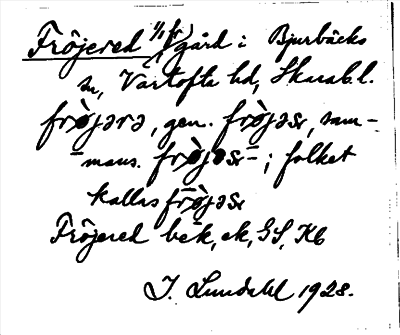 Fröjered 1/1 fr gård i Bjurbäcks
sn, Vartofta hd, Skarab. l.
frö̀jərə, gen. frö̀jəs, sam-
mans. frö̀jəs-; folket
kallas frö̀jəsr
Fröjered bek, ek, GS, Kb
I. Lundahl 1928.